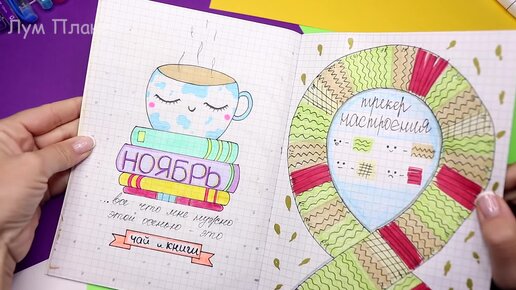 Лум План
НОЯБРЬ
...все что мне нужно
этой осенью это
чай и книги
трекер
настроения